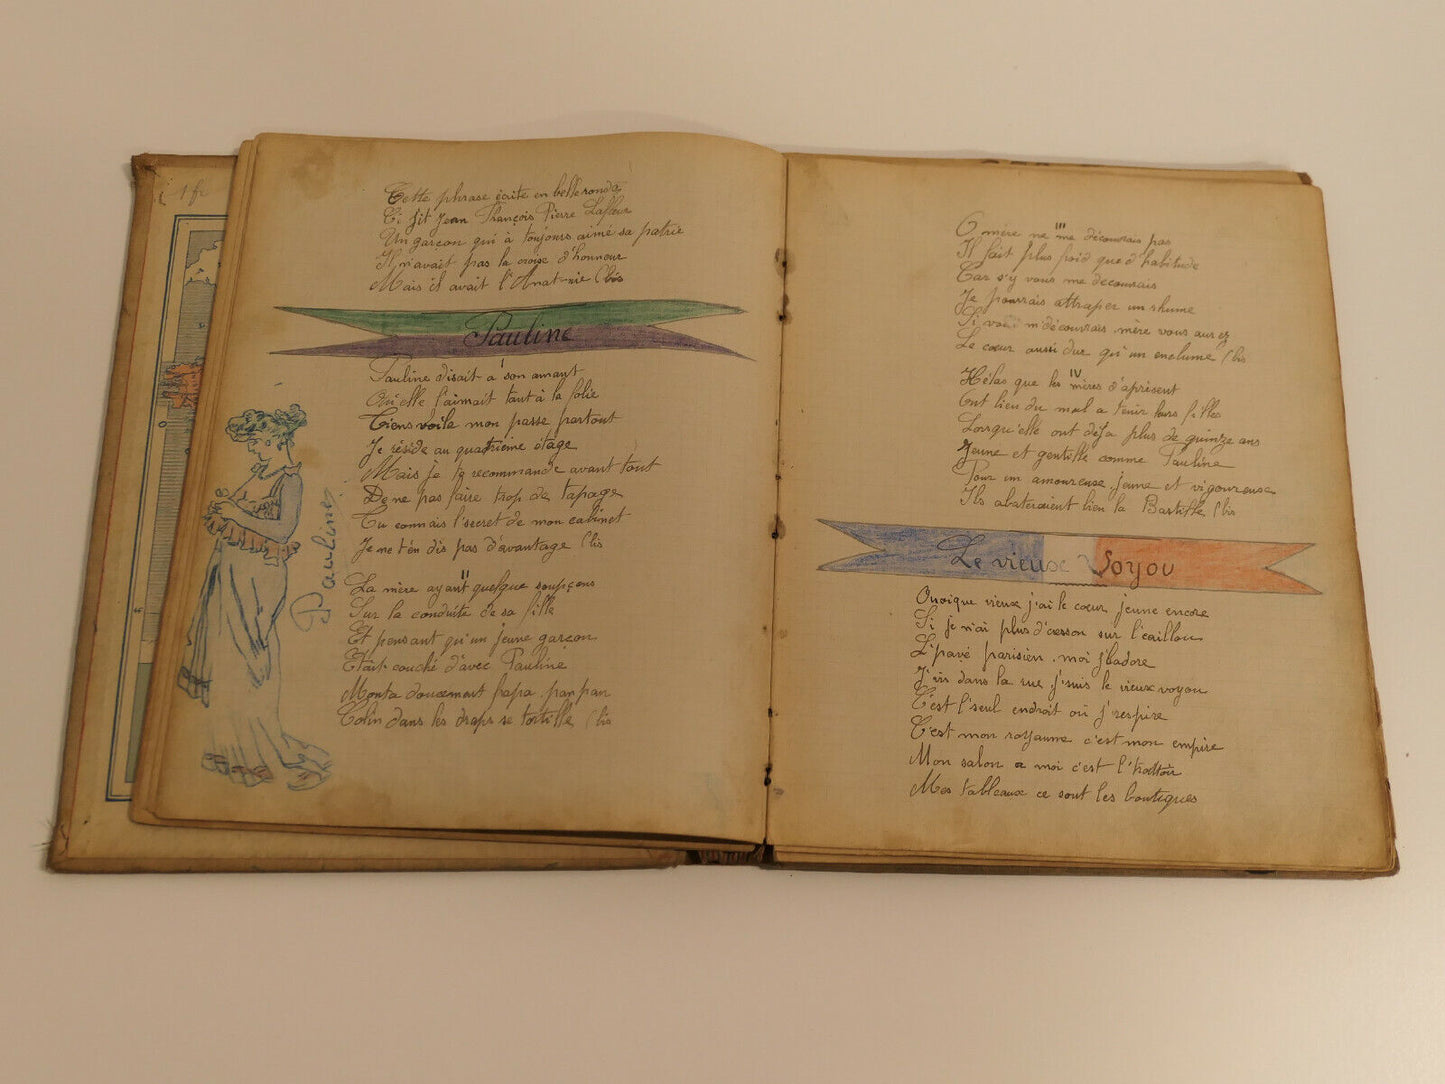 1 fr
Cette phrase écrite en belle ronde
Ci git Jean François Pierre Lafleur
Un garçon qui à toujours aimé sa patrie
Il n'avait pas la croise d'honneur
Mais il avait l'Anat-mie (bis
Pauline
Pauline disait a son amant
Qu'elle l'aimait tant à la folie
Tiens voila mon passe partout
Je réside au quatrieme étage
Mais je te recommande avant tout
De ne pas faire trop de tapage
Tu connais l'secret de mon cabinet
Je ne t'en dis pas d'avantage (bis
II
La mère ayant quelque soupçons
Sur la conduite de sa fille
Et pensant qu'un jeune garçon
Etait couché d'avec Pauline
Monta doucement papa pan pan
Colin dans les draps se tortille (bis
Pauline
III
O mère ne me découvrais pas
Il fait plus froid que d'habitude
Car s'y vous me decouvrais
Je pourrais attraper un rhume
Si vous m'découvrais mère vous aurez
Le cœur aussi dur qu'un enclume (bis
IV
Hélas que les mères d'aprisent
Ont lieu du mal a tenir leurs filles
Lorsqu'elle ont déja plus de quinze ans
Jeune et gentille comme Pauline
Pour un amoureuse jeune et vigoureuse
Ils abateraient bien la Bastille (bis
Le vieux Voyou
Quoique vieux j'ai le cœur jeune encore
Si je n'ai plus d'cresson sur l'caillou
L'pavé parisien moi j'ladore
J'vis dans la rue j'suis le vieux voyou
C'est l'seul endroit où j'respire
C'est mon royaume c'est mon empire
Mon salon a moi c'est l'trottoir
Mes tableaux ce sont les boutiques